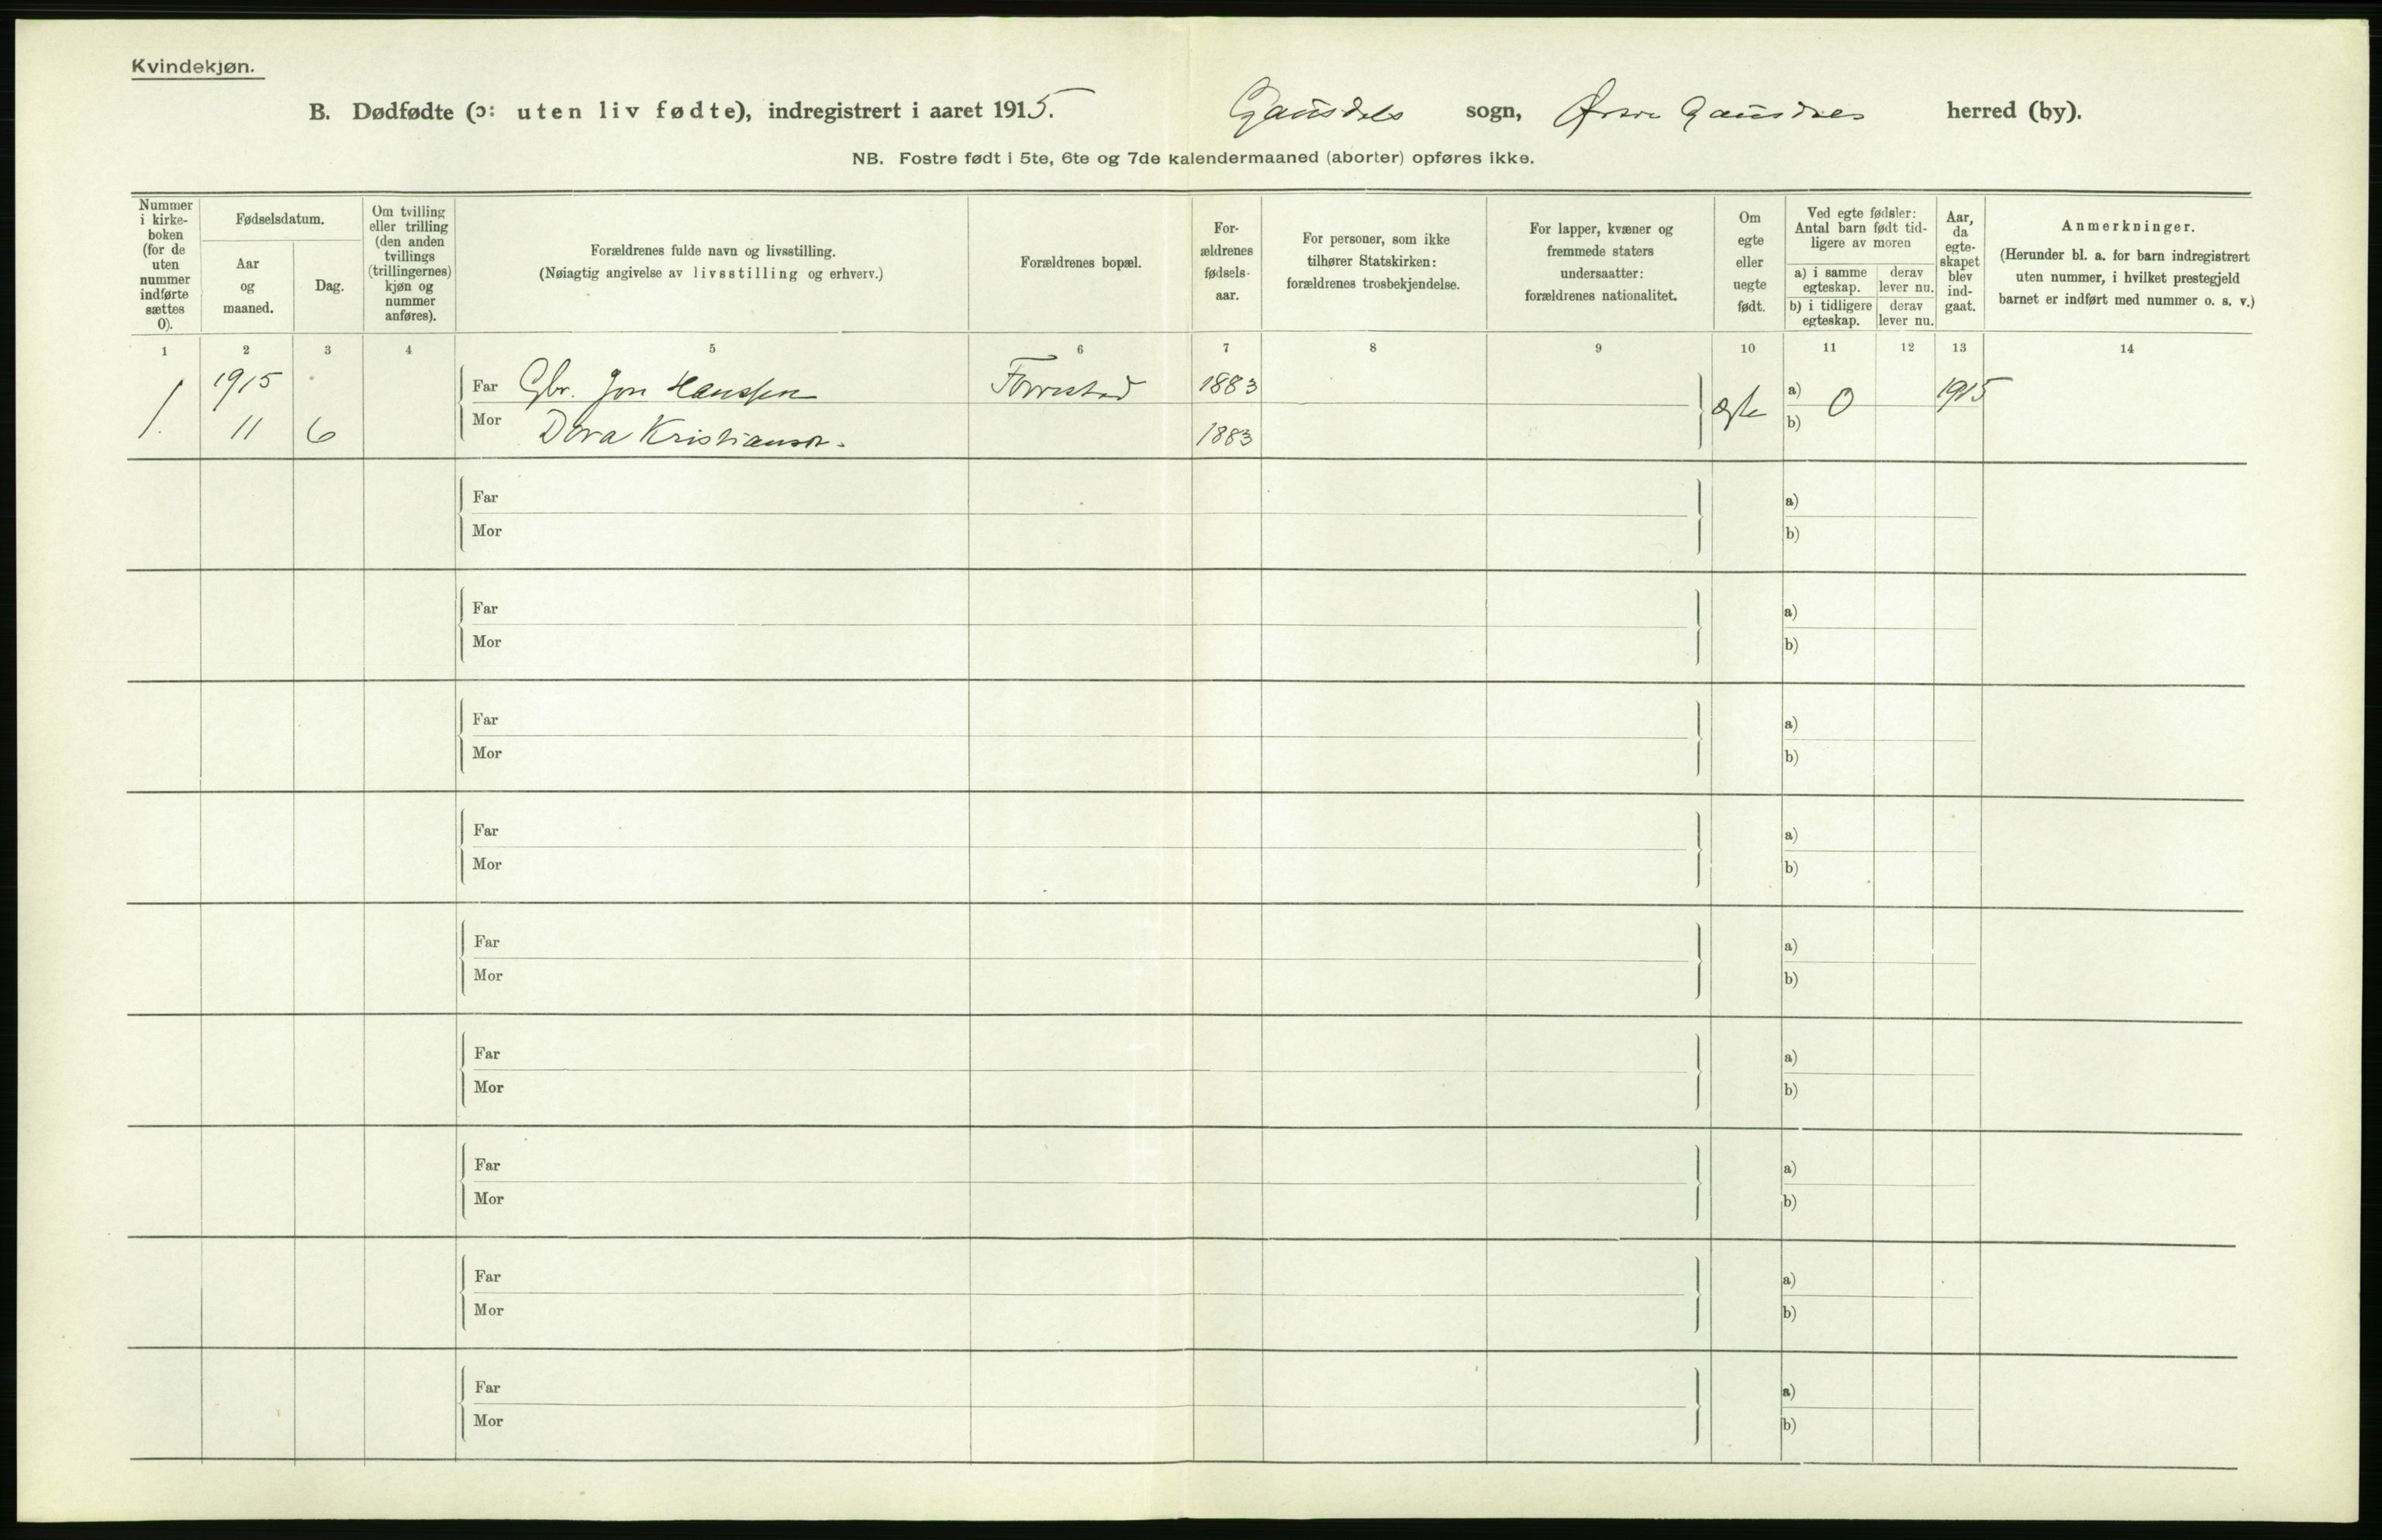 Kvindekjøn.
B. Dødfødte (ɔ: uten liv fødte), indregistrert i aaret 1915. Gausdals sogn, Østre Gausdals herred (by).
NB. Fostre født i 5te, 6te og 7de kalendermaaned (aborter) opføres ikke.
Nummer i kirke-boken (for de uten nummer indførte sættes 0).
Fødselsdatum.
Aar og maaned.
Dag.
Om tvilling eller trilling (den anden tvillings (trillingernes) kjøn og nummer anføres).
Forældrenes fulde navn og livsstilling.
(Nøiagtig angivelse av livsstilling og erhverv.)
Forældrenes bopæl.
For-ældrenes fødsels-aar.
For personer, som ikke tilhører Statskirken: forældrenes trosbekjendelse.
For lapper, kvæner og fremmede staters undersaatter: forældrenes nationalitet.
Om egte eller uegte født.
Ved egte fødsler: Antal barn født tid-ligere av moren
a) i samme egteskap.
derav lever nu.
b) i tidligere egteskap.
derav lever nu.
Aar, da egte-skapet blev ind-gaat.
Anmerkninger.
(Herunder bl. a. for barn indregistrert uten nummer, i hvilket prestegjeld barnet er indført med nummer o. s. v.)
1 2 3 4 5 6 7 8 9 10 11 12 13 14
1. 1915 Far Gbr. Jon Hanssen 1883 egte a) 0 1915
11 6 Mor Dora Kristiansdr. 1883 b)
Far a)
Mor b)
Far a)
Mor b)
Far a)
Mor b)
Far a)
Mor b)
Far a)
Mor b)
Far a)
Mor b)
Far a)
Mor b)
Far a)
Mor b)
Far a)
Mor b)